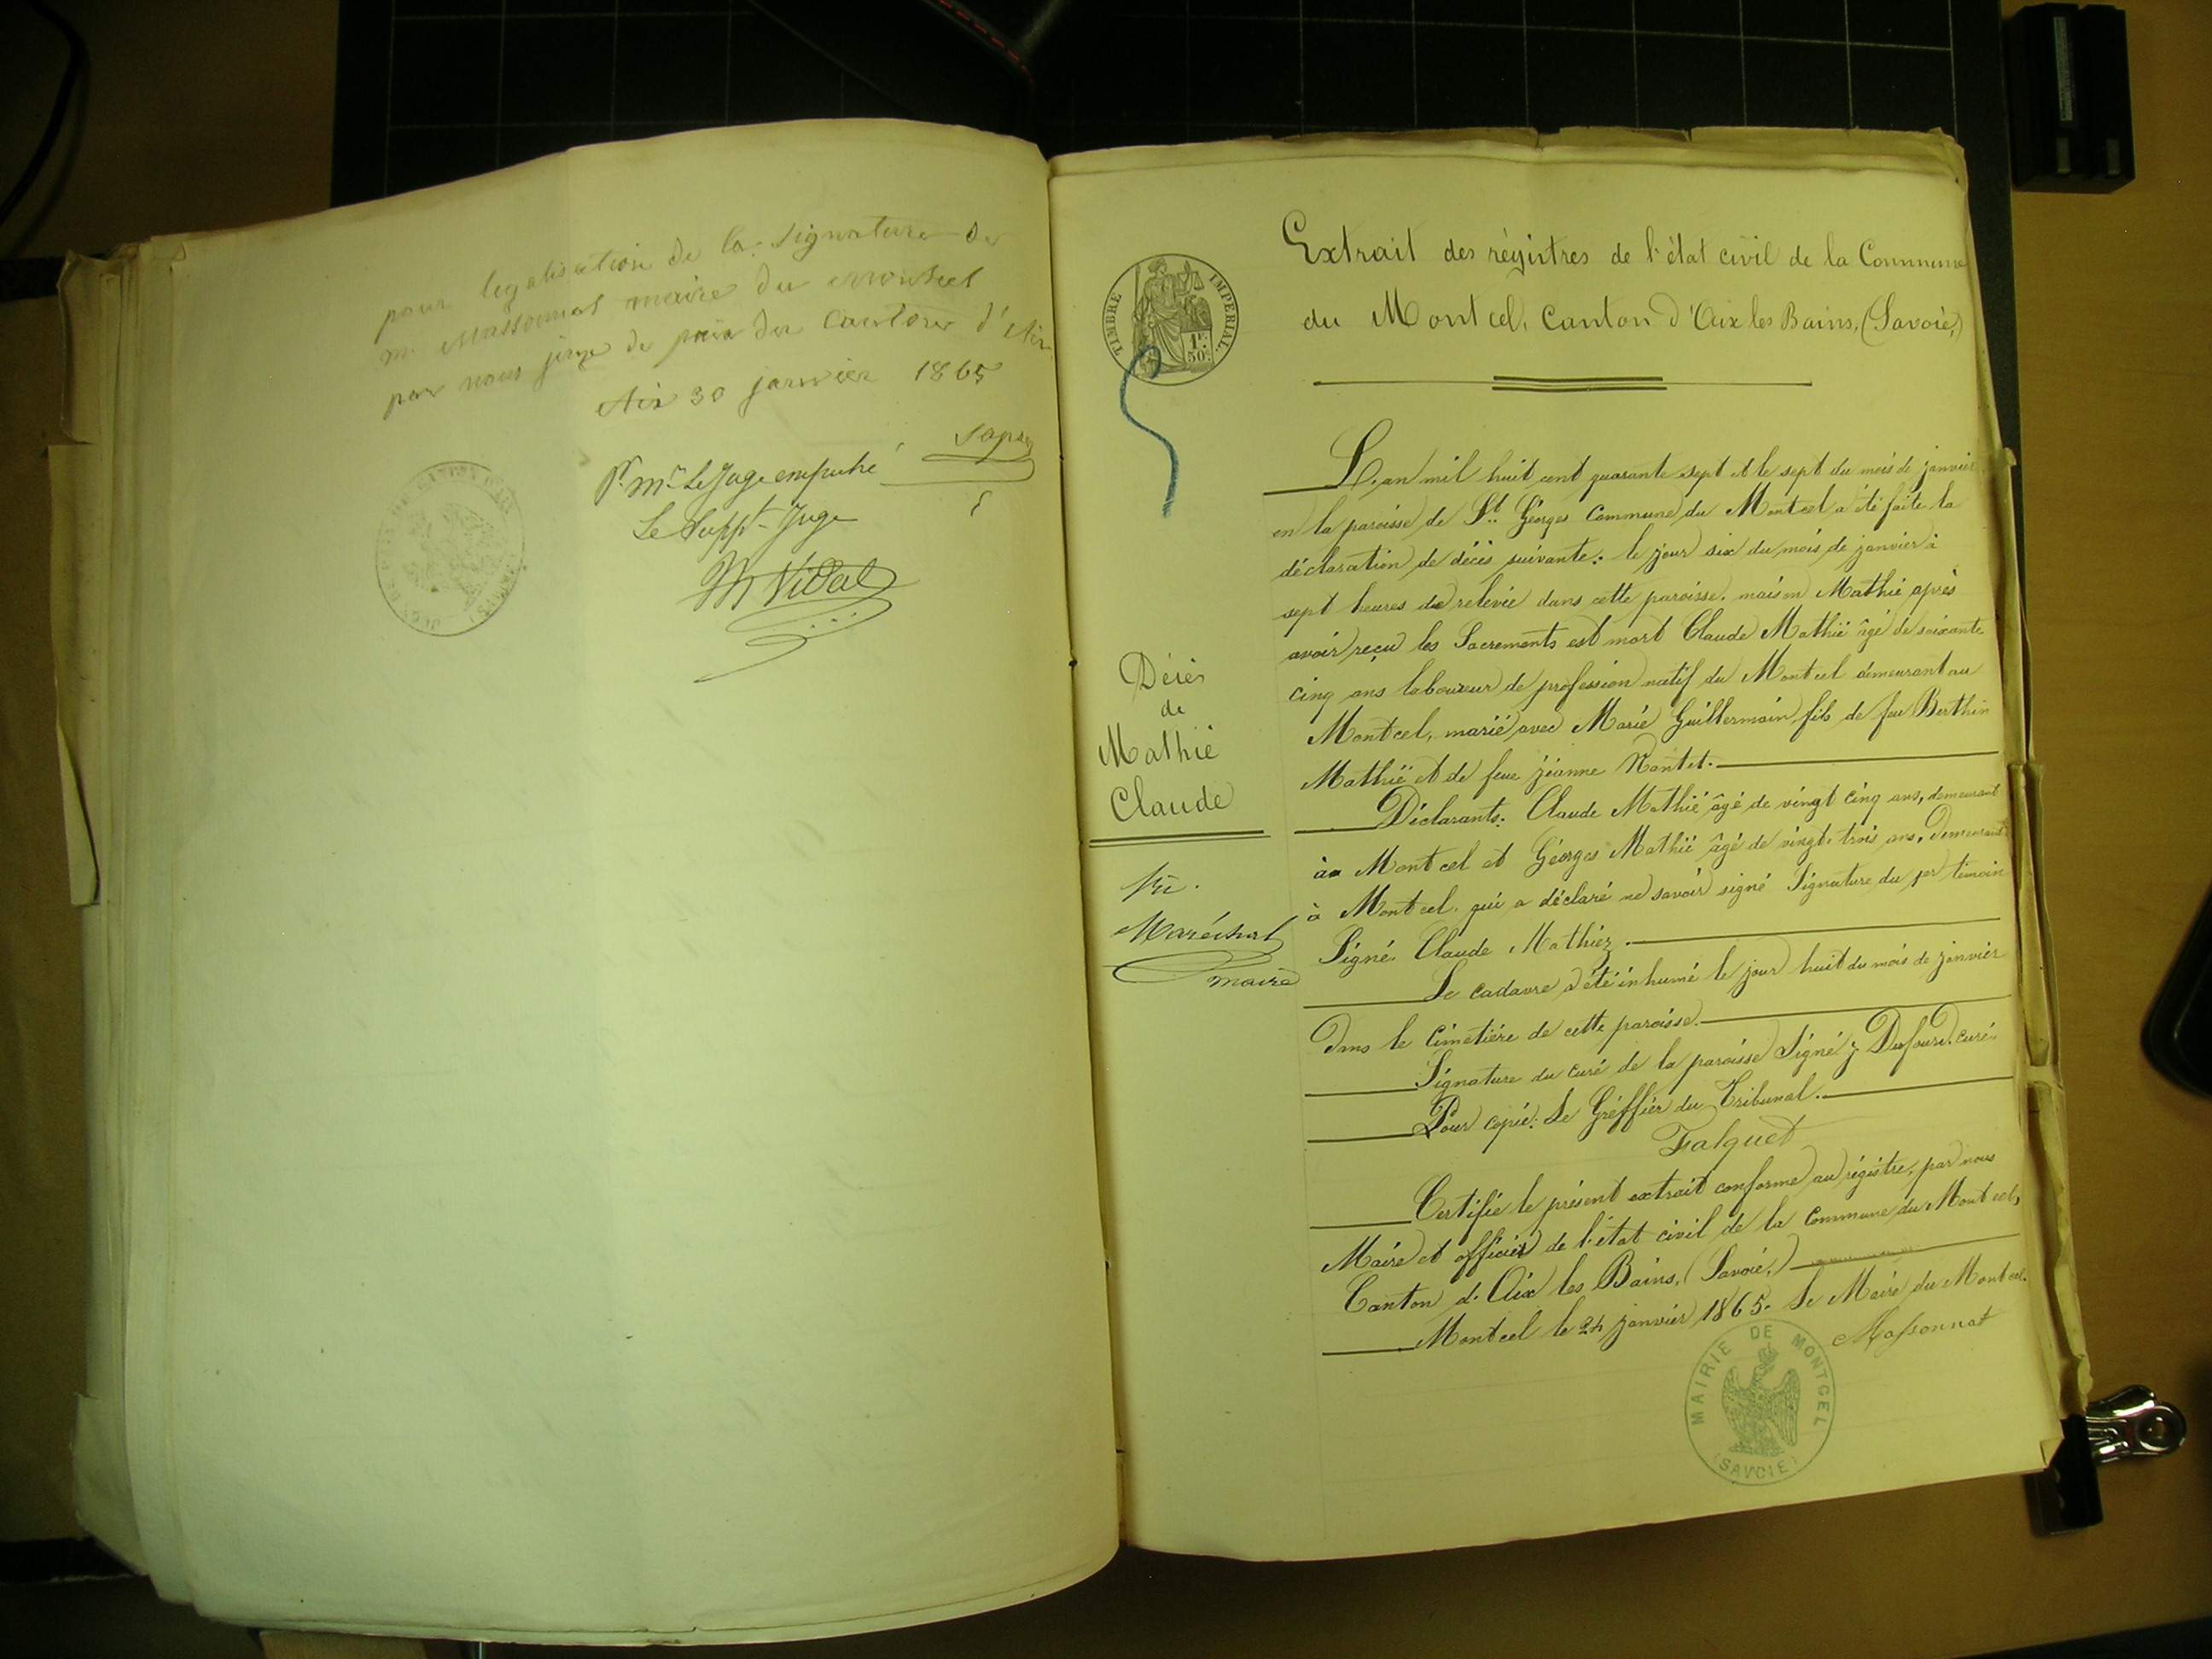 pour legalisation de la signature de
m. Massonnat maire du montcel
par nous juge de paix du Canton d'Aix
Aix 30 janvier 1865
Pr. mr. Le Juge empeché
Le Suppt. Juge
Vidal
TIMBRE IMPERIAL.
1F. 50c.
Extrait des régistres de l'état civil de la Commune
du Montcel, Canton d'Aix les Bains, (Savoie,)
L'an mil huit cent quarante sept et le sept du mois de janvier
en la paroisse de St. Georges Commune du Montcel a été faite la
déclaration de décès suivante: le jour six du mois de janvier à
sept heures de relevée dans cette paroisse, maison Mathié après
avoir reçu les Sacrements est mort Claude Mathié âgé de soixante
cinq ans laboureur de profession natif du Montcel demeurant au
Montcel, marié avec Marie Guillermain fils de feu Berthin
Mathié et de feue jeanne Nantet.
Déclarants: Claude Mathié âgé de vingt cinq ans, demeurant
au Montcel et Géorges Mathié âgé de vingt-trois ans, demeurant
à Montcel. qui a déclaré ne savoir signé Signature du 1er témoin
Signé. Claude Mathiez.
Le cadavre a été inhumé le jour huit du mois de janvier
dans le Cimetière de cette paroisse.
Signature du curé de la paroisse Signé j Dufourd. curé.
Pour copie: Le Gréffier du Tribunal.
Falquet
Certifié le présent extrait conforme au régistre, par nous
Maire et officier de l'état civil de la Commune du Montcel,
Canton d'Aix les Bains, (Savoie,)
Montcel le 24 janvier 1865. Le Maire du Montcel.
Massonnat
MAIRIE DE MONTCEL
(SAVOIE)
Décès
de
Mathié
Claude
Vu.
Maréchal
maire